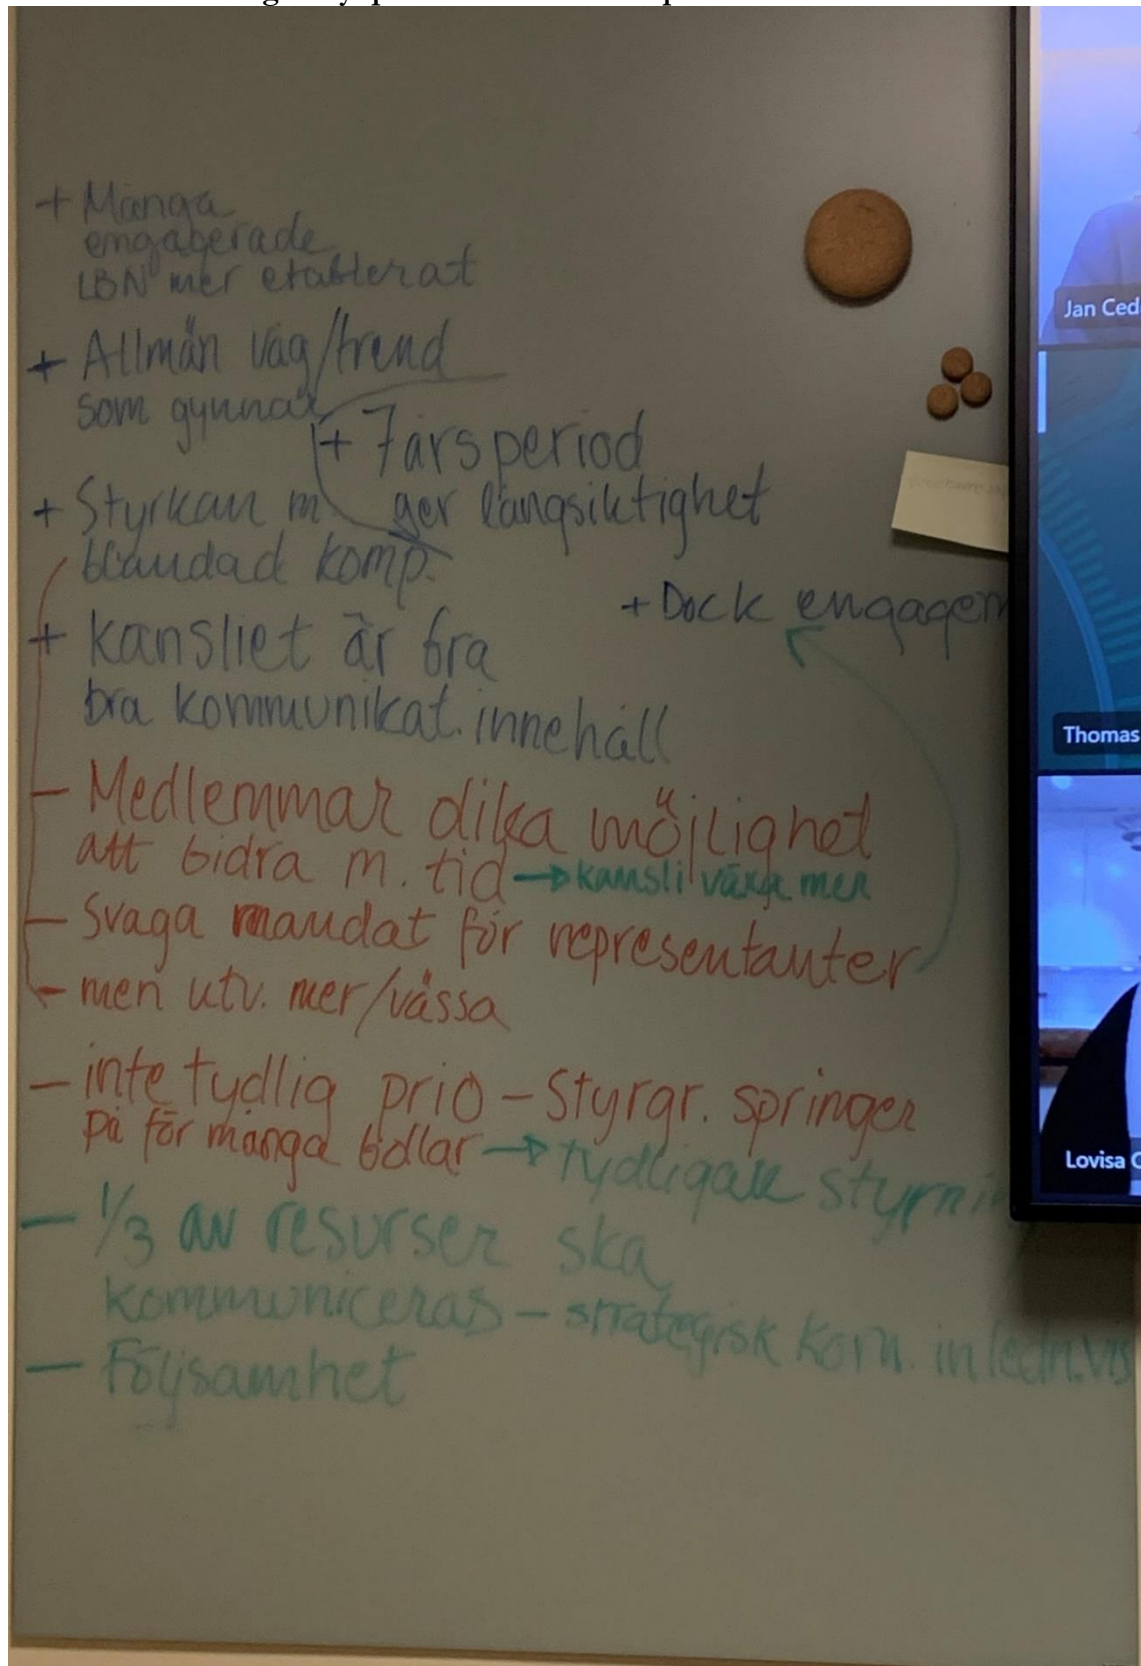 + Många
engagerade
LBN mer etablerat
+ Allmän våg/trend
som gynnar
+ 7årsperiod
ger långsiktighet
+ Styrkan m
blandad komp.
+ Dock engagem
+ kansliet är bra
bra kommunikat. innehåll
- Medlemmar olika möjlighet
att bidra m. tid → kansli växa mer
- Svaga mandat för representanter
- men utv. mer/vässa
- inte tydlig prio - Styrgr. springer
på för många bollar → tydligare styrni
- 1/3 av resurser ska
kommuniceras - strategisk kom. in ledn.vis
- Följsamhet
Jan Ced
Thomas
Lovisa C